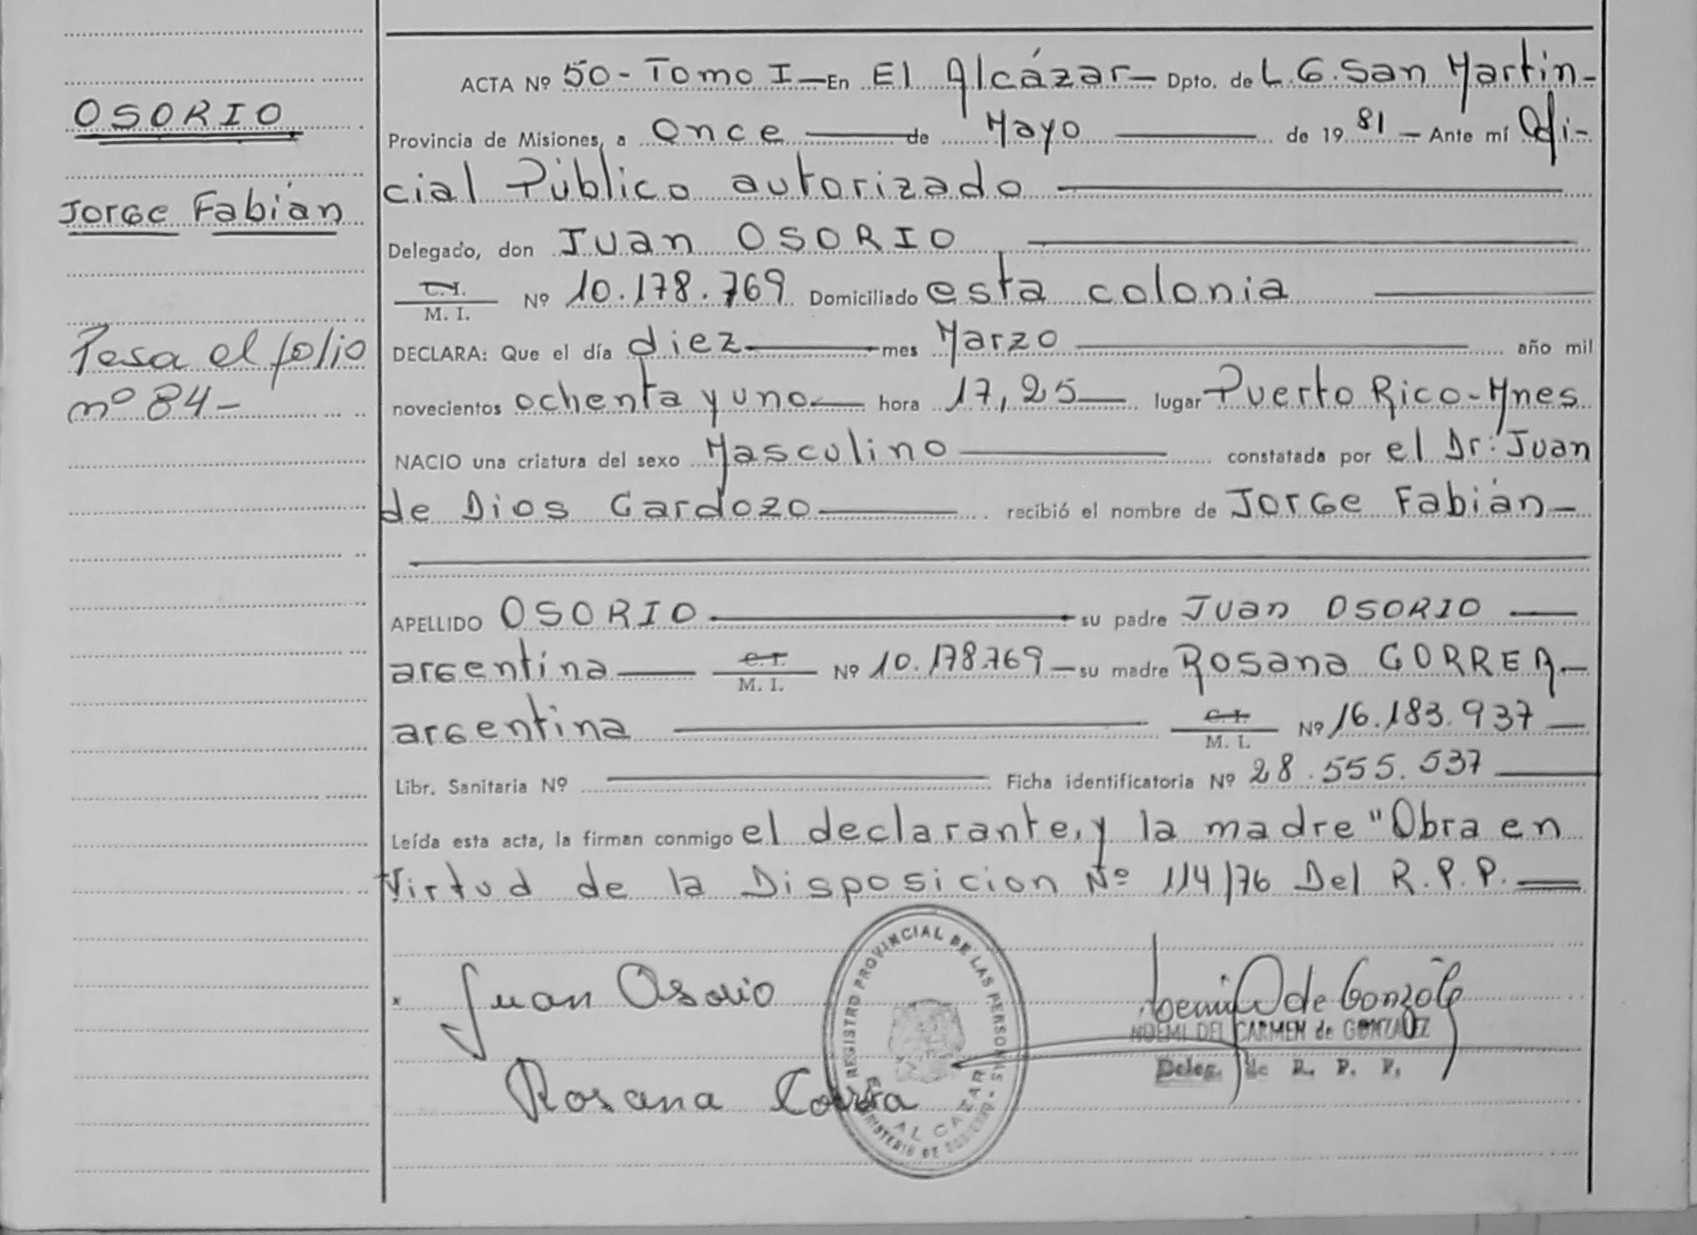 OSORIO
Jorge Fabián
Pasa al folio
nº 84-
ACTA Nº 50 - Tomo I - En El Alcázar - Dpto. de L. G. San Martin -
Provincia de Misiones, a once de Mayo de 1981 - Ante mí Ofi-
cial Público autorizado
Delegado, don Juan OSORIO
C.I.
M. I. Nº 10.178.769 Domiciliado esta colonia
DECLARA: Que el día diez mes Marzo año mil
novecientos ochenta y uno hora 17,25 lugar Puerto Rico - Mnes
NACIO una criatura del sexo Masculino constatada por el Dr: Juan
de Dios Cardozo recibió el nombre de Jorge Fabián -
APELLIDO OSORIO su padre Juan OSORIO
argentina C.I.
M. I. Nº 10.178.769 - su madre Rosana CORREA -
argentina C.I.
M. I. Nº 16.183.937
Libr. Sanitaria Nº Ficha identificatoria Nº 28.555.537
Leída esta acta, la firman conmigo el declarante, y la madre "Obra en
Virtud de la Disposicion Nº 114/76 Del R.P.P.
Juan Osorio
Rosana Correa
REGISTRO PROVINCIAL DE LAS PERSONAS
EL ALCAZAR
MINISTERIO DE GOBIERNO
de Gonzalez
NOEMI DEL CARMEN de GONZALEZ
Deleg. de R. P. P.